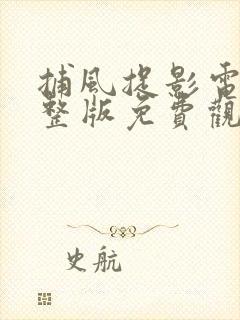 捕風捉影電
整版免費觀
史航